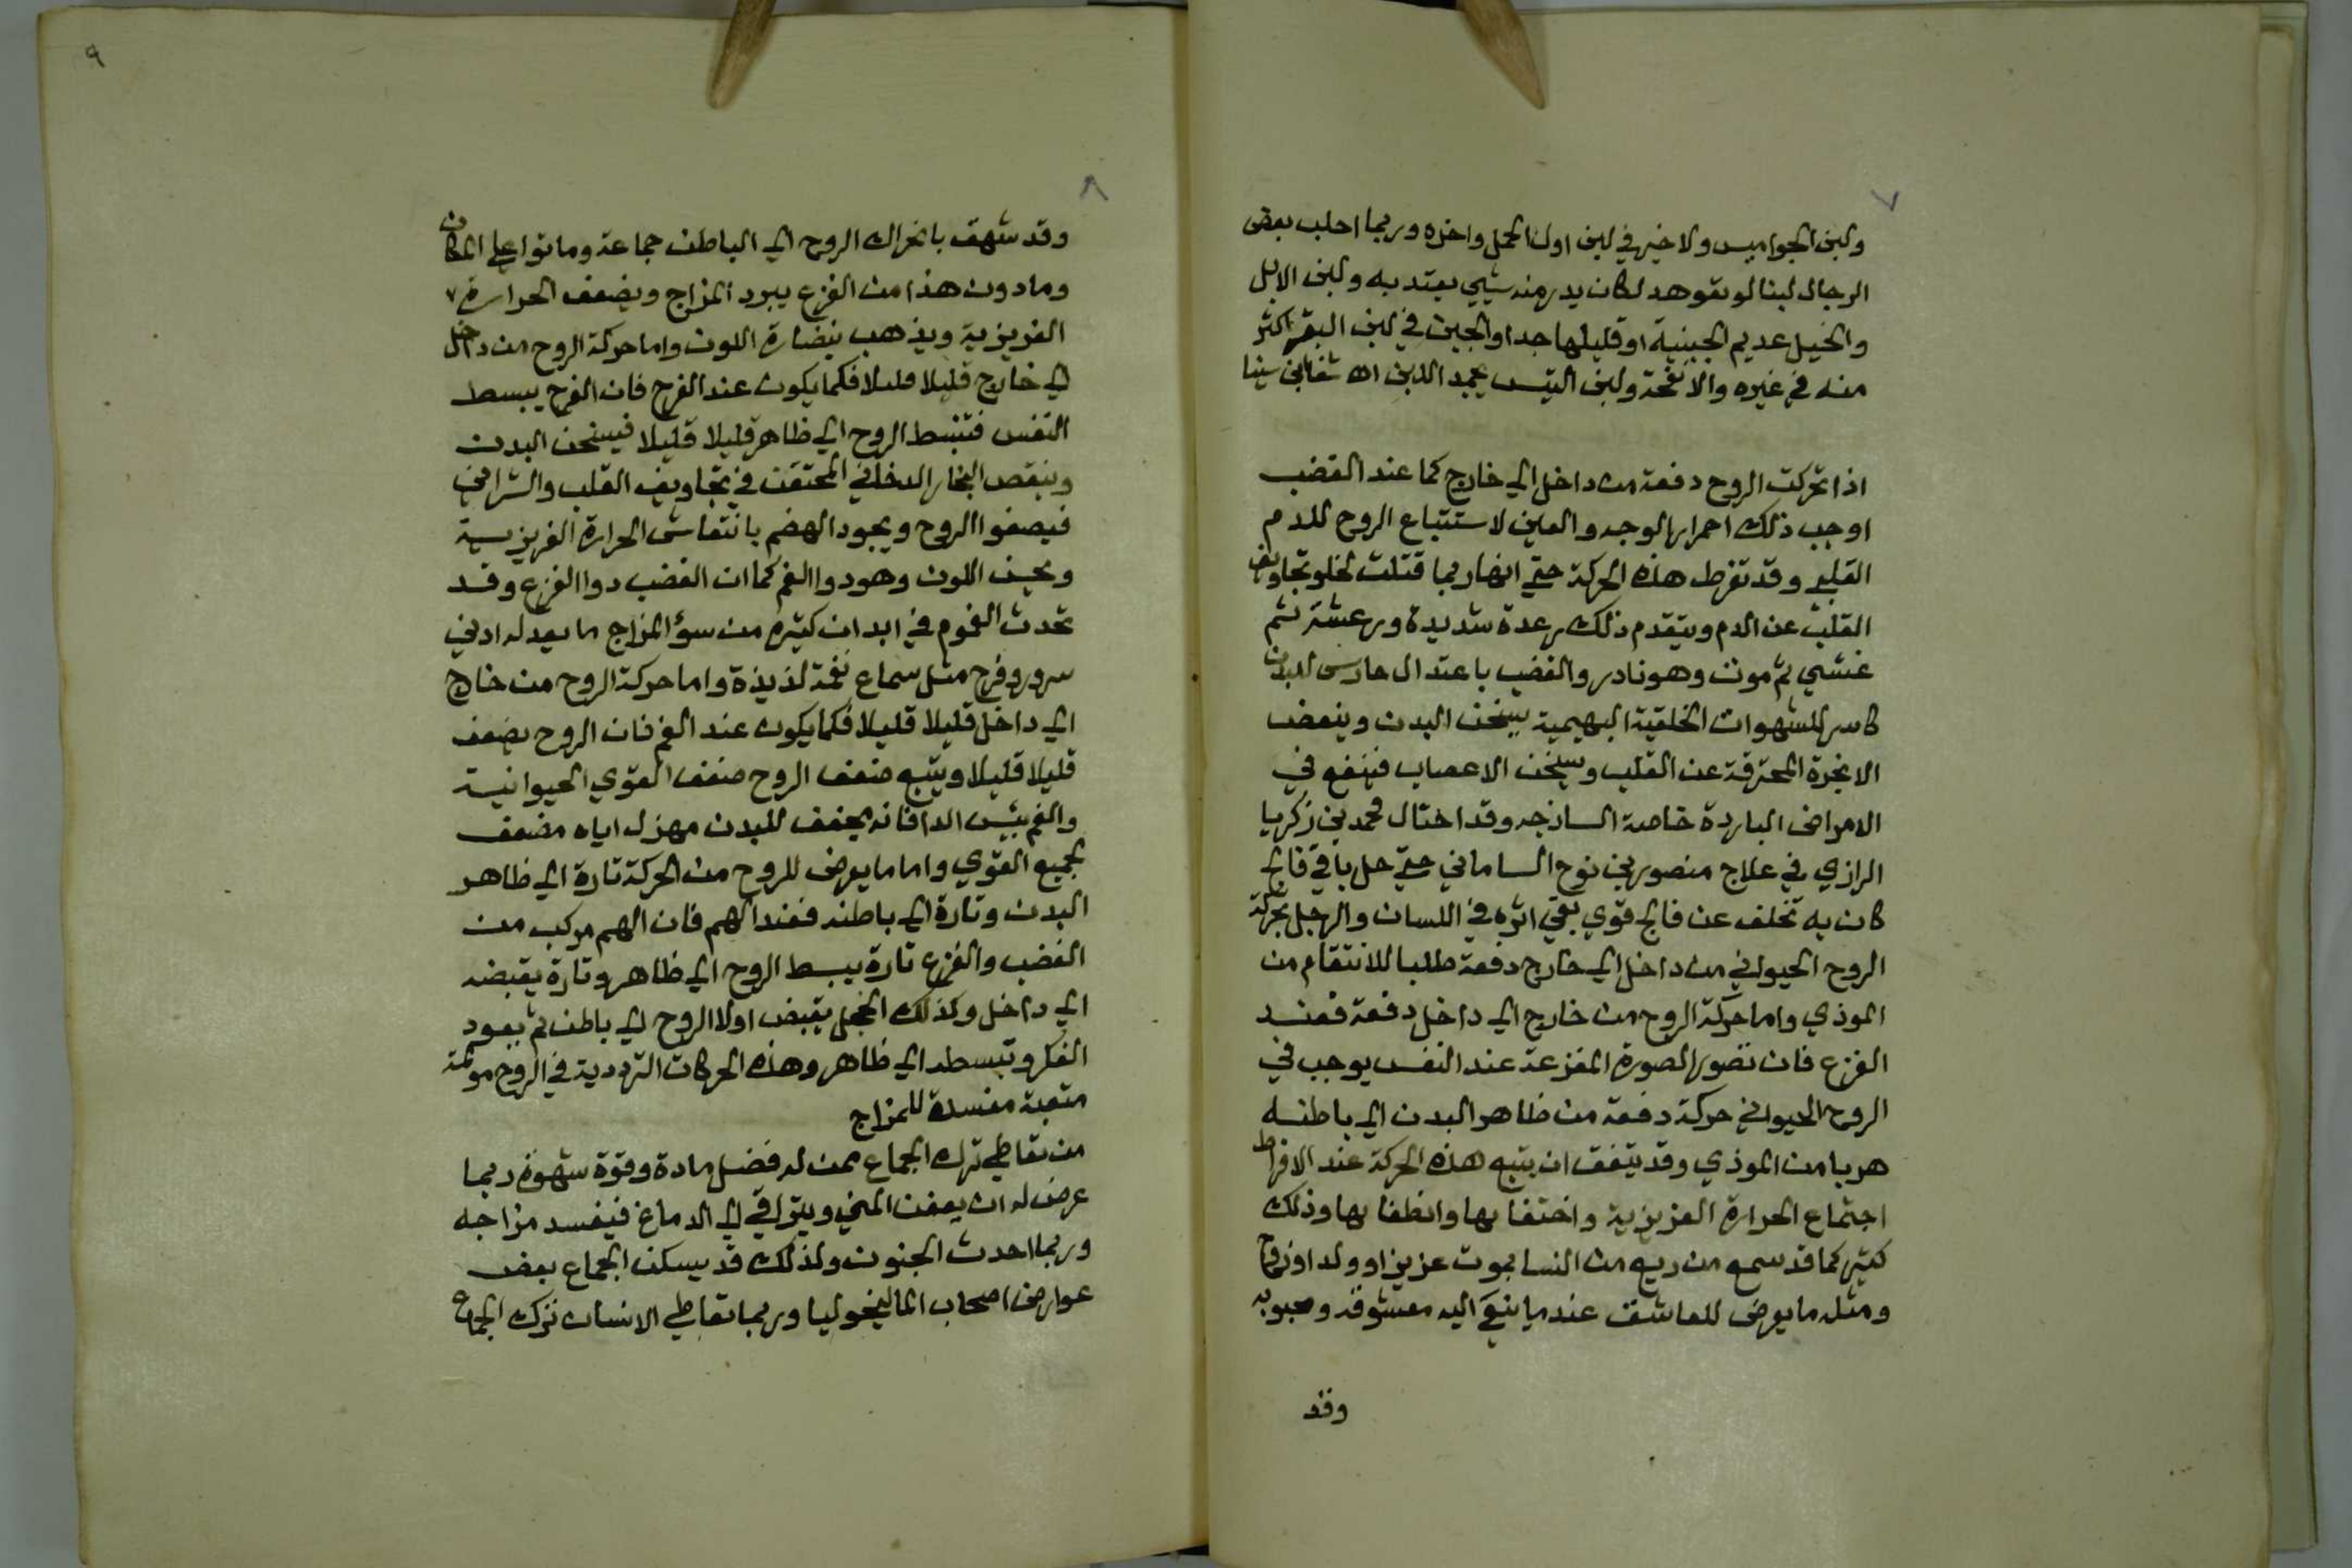 ٧
ولبن الجواميس ولا خير في لبن اول الحمل واخره وربما احلب بعض
الرجال لبنا لو تعوهد لكان يدر منه شيي يعتد به ولبن الابل
والخيل عديم الجبنية او قليلها جدا والجبن في لبن البقر اكثر
منه في غيره والانفحة ولبن التيس يجمد اللبن اه شفا ابن سينا
اذا تحركت الروح دفعة من داخل الي خارج كما عند الغضب
اوجب ذلك احمرار الوجه والعين لاستتباع الروح للدم
القلبي وقد تفرط هذه الحركة حتي انها ربما قتلت لخلو تجاويف
القلب عن الدم ويتقدم ذلك رعدة شديدة ورعشة ثم
غشي ثم موت وهو نادر والغضب باعتدال حارس للبدن
كاسر للشهوات الخلقية البهيمية يسخن البدن وينفض
الابخرة المحترقة عن القلب ويسخن الاعصاب فينفع في
الامراض الباردة خاصة الساذجه وقد احتال محمد بن زكريا
الرازي في علاج منصور بن نوح الساماني حتي حل باقي فالج
كان به تخلف عن فالج قوي بقي اثره في اللسان والرجل بحركة
الروح الحيواني من داخل الي خارج دفعة طلبا للانتقام من
الموذي واما حركة الروح من خارج الي داخل دفعة فعند
الفزع فان تصور الصورة المفزعة عند النفس يوجب في
الروح الحيواني حركة دفعة من ظاهر البدن الي باطنه
هربا من الموذي وقد يتفق ان يتبع هذه الحركة عند الافراط
اجتماع الحرارة الغزيزية واختفابها وانطفابها وذلك
كثير كما قد سمع من ريع من النسا بموت عزيز او ولد او زوج
ومثله ما يعرض للعاشق عند ما ينعي اليه معشوقه ومحبوبه
وقد
٩
٨
وقد شهق بانحراك الروح الي الباطن جماعة وماتوا علي المكان
وما دون هذا من الفزع يبرد المزاج ويضعف الحرارة
الغزيزية ويذهب بنضارة اللون واما حركة الروح من داخل
الي خارج قليلا قليلا فكما يكون عند الفرح فان الفرح يبسط
النفس فتنبسط الروح الي ظاهر قليلا قليلا فيسخن البدن
وينقص البخار الدخاني المحتقن في تجاويف القلب والشرايين
فيصفوا الروح ويجود الهضم بانتعاش الحرارة الغريزيية
ويحسن اللون وهو دوا الغم كما ان الغضب دوا الفزع وقد
تحدث الغموم في ابدان كثيرة من سؤ المزاج ما يعدله ادني
سرور وفرح مثل سماع نغمة لذيذة واما حركة الروح من خارج
الي داخل قليلا قليلا فكما يكون عند الغم فان الروح يضعف
قليلا قليلا ويتبع ضعف الروح ضعف القوي الحيوانية
والغم بئس الدا فانه يجفف للبدن مهزل اياه مضعف
لجميع القوي واما ما يعرض للروح من الحركة تارة الي ظاهر
البدن وتارة الي باطنه فعند الهم فان الهم مركب من
الغضب والفزع تارة يبسط الروح الي ظاهر وتارة يقبضه
الي داخل وكذلك الخجل يقبض اولا الروح الي باطن ثم يعود
الفكر وتبسطه الي ظاهر وهذه الحركات الترددية في الروح مولمة
متعبة مفسدة للمزاج
من تعاطي ترك الجماع ممن له فضل مادة وقوة شهوة ربما
عرض له ان يعفن المني ويتراقي الي الدماغ فيفسد مزاجه
وربما احدث الجنون ولذلك قد يسكن الجماع بعض
عوارض اصحاب الماليخوليا وربما تعاطي الانسان ترك الجماع